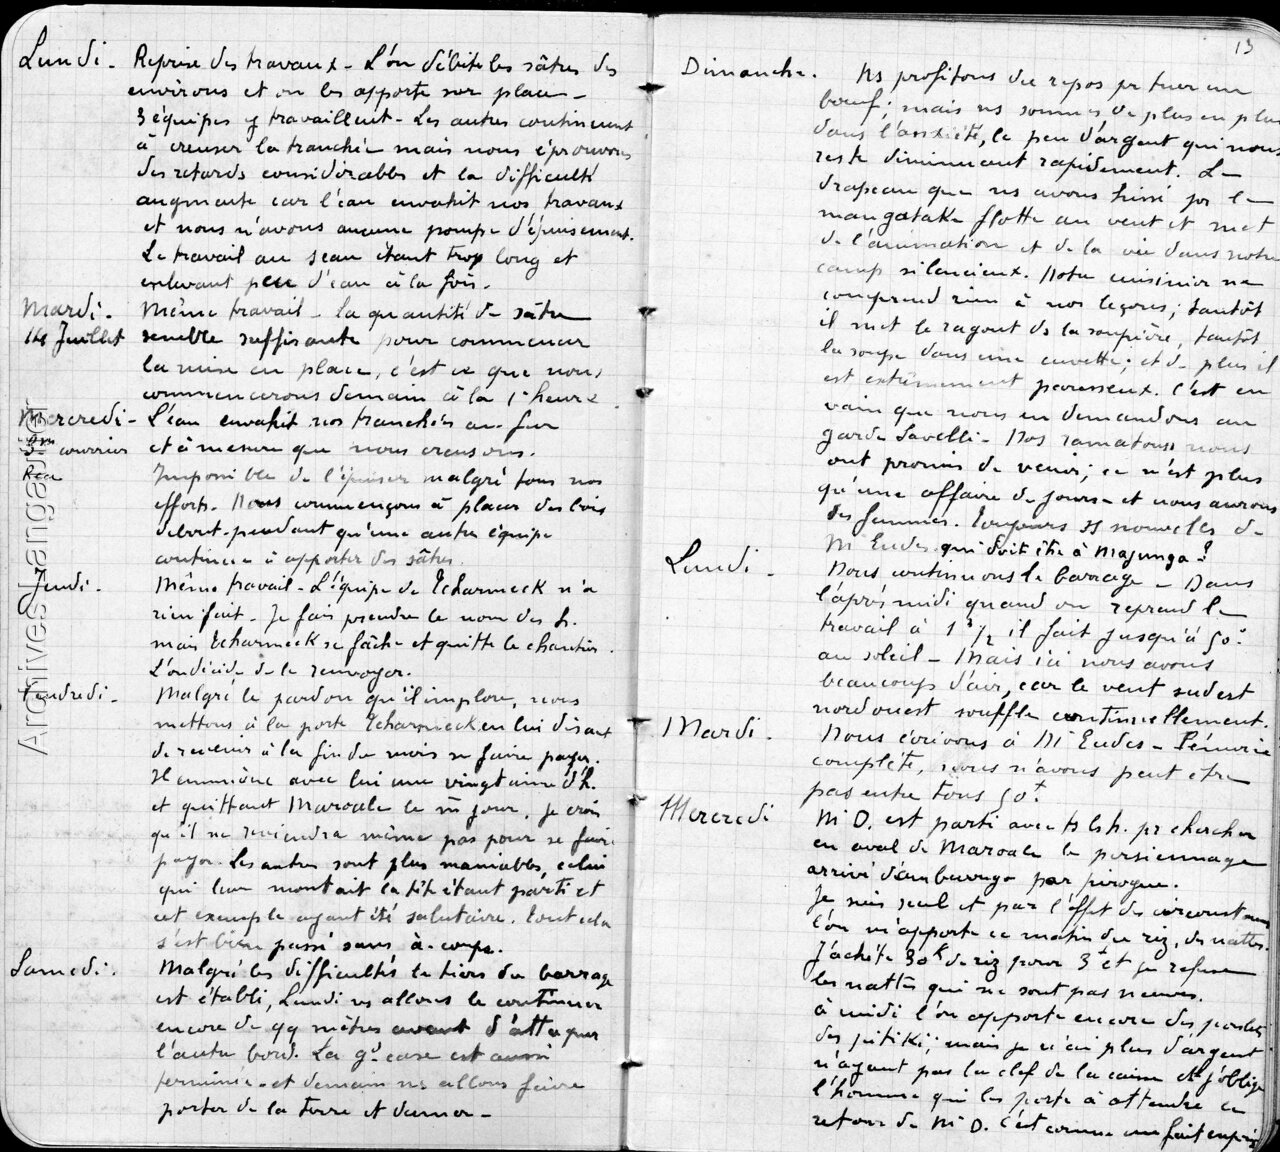 Lundi - Reprise des travaux - L'on débite les sâtres des
environs et on les apporte sur place -
3 équipes y travaillent - Les autres continuent
à creuser la tranchée mais nous éprouvons
des retards considérables et la difficulté
augmente car l'eau envahit nos travaux
et nous n'avons aucune pompe d'épuisement.
Le travail au seau étant trop long et
enlevant peu d'eau à la fois.
Mardi - Même travail - la quantité de sâtre
14 Juillet semble suffisante pour commencer
la mise en place, c'est ce que nous
commencerons demain à la 1e heure
Mercredi - L'eau envahit nos tranchées au fur
courrier et à mesure que nous creusons.
Impossible de l'épuiser malgré tous nos
efforts. Nous commençons à placer des bois
debout pendant qu'une autre équipe
continue à apporter des sâtres.
Jeudi - Même travail - L'équipe de Echarmeck n'a
rien fait - Je fais prendre le nom des h.
mais Echarmeck se fâche et quitte le chantier.
L'on décide de le renvoyer.
Vendredi - Malgré le pardon qu'il implore, nous
mettons à la porte Echarmeck en lui disant
de revenir à la fin du mois se faire payer.
Il emmène avec lui une vingtaine d'h.
et quittant Maroala le m̄ jour, je crois
qu'il ne reviendra même pas pour se faire
payer. Les autres sont plus maniables, celui
qui leur montait la tête étant parti et
cet exemple ayant été salutaire. Tout cela
s'est bien passé sans à-coups.
Samedi. Malgré les difficultés le tiers du barrage
est établi, Lundi ns allons le continuer
encore de qq mètres avant d'attaquer
l'autre bord. La gde case est aussi
terminée - et demain ns allons faire
porter de la terre et damer -
Archives Langautier
13
Dimanche. Ns profitons du repos pr tuer un
boeuf; mais ns sommes de plus en plus
dans l'anxiété, le peu d'argent qui nous
reste diminuant rapidement. Le
drapeau que ns avons hissé sur le
mangataka flotte au vent et met
de l'animation et de la vie dans notre
camp silencieux. Notre cuisinier ne
comprend rien à nos leçons; tantôt
il met le ragout ds la soupière, tantôt
la soupe dans une cuvette; et de plus il
est extrêmement paresseux. C'est en
vain que nous en demandons au
garde Savelli - Nos ramatous nous
ont promis de venir; ce n'est plus
qu'une affaire de jours - et nous aurons
des femmes. Toujours ss nouvelles de
Mr Eudes qui doit être à Majunga?
Lundi - Nous continuons le barrage - Dans
l'après midi quand on reprend le
travail à 1h ½ il fait jusqu'à 50°
au soleil - Mais ici nous avons
beaucoup d'air, car le vent sud est
nord ouest souffle continuellement.
Mardi. Nous écrivons à Mr Eudes - Pénurie
complète, nous n'avons peut être
pas entre tous 50f.
Mercredi Mr D. est parti avec ts ls h. pr chercher
en aval de Maroala le persiennage
arrivé d'Amburongo par pirogue.
Je suis seul et par l'effet des circonstances
l'on m'apporte ce matin du riz, des nattes.
J'achète 30k de riz pour 3f et je refuse
les nattes qui ne sont pas neuves.
à midi l'on apporte encore des poules
des pitiki; mais je n'ai plus d'argent
n'ayant pas la clef de la caisse et j'oblige
l'homme qui les porte à attendre le
retour de Mr D. C'est comme un fait exprès